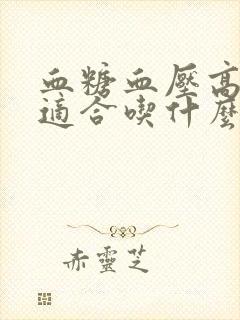 血糖血壓高
適合喫什麼
赤靈芝